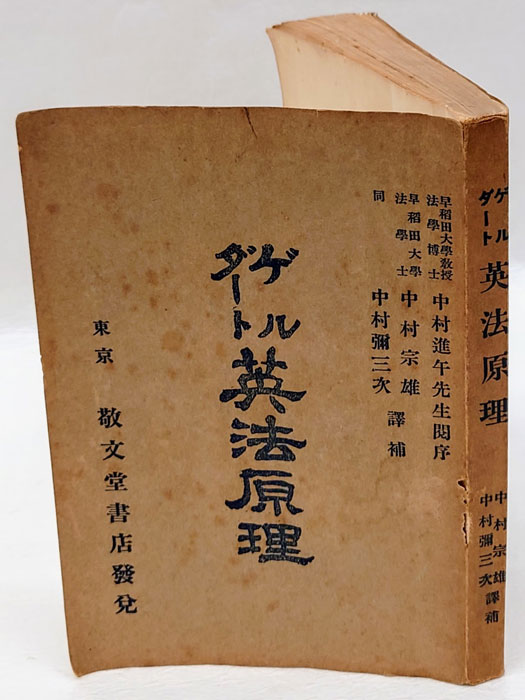 早稻田大學教授
法學博士
中村進午先生閲序
早稻田大學
法學士
中村宗雄
同
中村彌三次
譯補
ゲルダート
英法原理
東京 敬文堂書店發兌
ゲルダート
英法原理
中村宗雄
中村彌三次
譯補